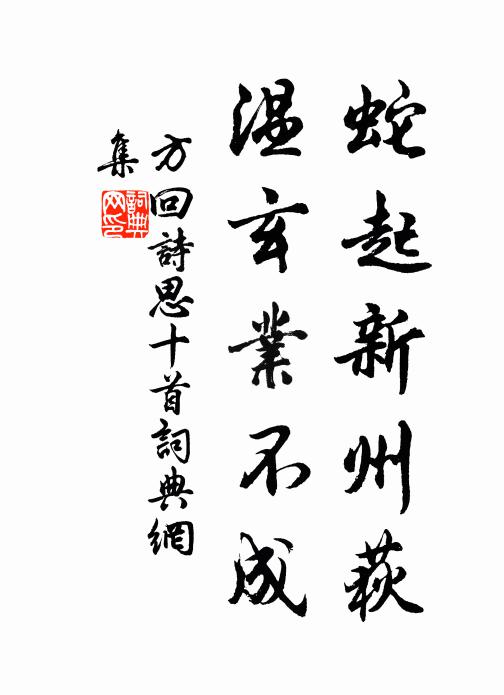 蛇起新州荻
温玄業不成
方回詩思十首詞典網
集
詞典网印